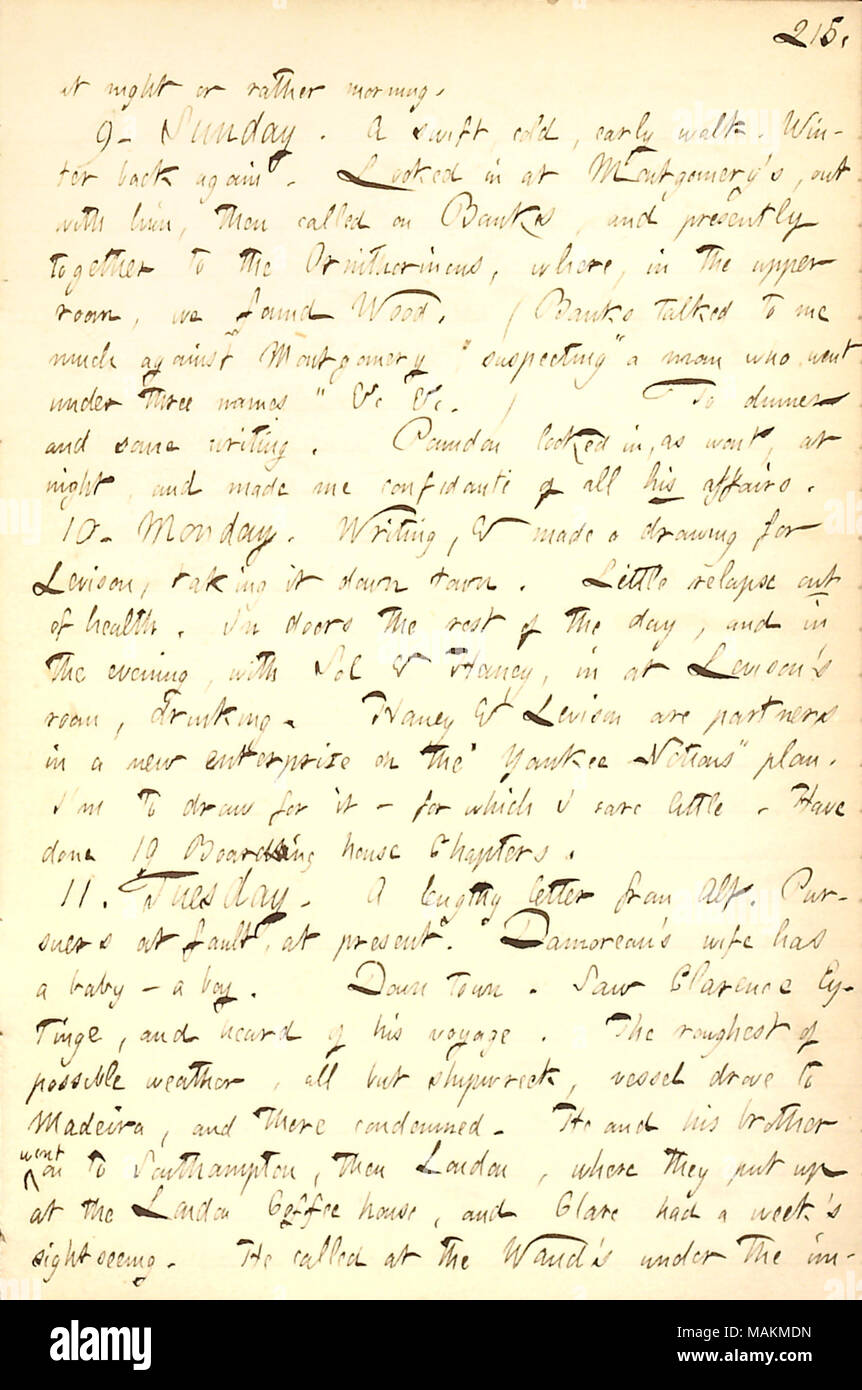 215.
it night or rather morning.
9. Sunday. A swift, cold, early walk. Win-
ter back again. Looked in at Montgomery's, out
with him, then called on Banks, and presently
together to the Ornithorincus, where, in the upper
room, we found Wood. (Banks talked to me
much against Montgomery, "suspecting" a man who went
under three names" &c &c.) To dinner
and some writing. Pounden looked in, as wont, at
night, and made me confidante of all his affairs.
10. Monday. Writing, & made a drawing for
Levison, taking it down town. Little relapse out
of health. In doors the rest of the day, and in
the evening, with Sol & Haney, in at Levison's
room, drinking. Haney & Levison are partners
in a new enterprize on the "Yankee Notions" plan.
I'm to draw for it - for which I care little. Have
done 19 Boarding house Chapters.
11. Tuesday. A lengthy letter from Alf. Pur-
suers at fault, at present. Damoreau's wife has
a baby - a boy. Down town. Saw Clarence Ey-
tinge, and heard of his voyage. The roughest of
possible weather, all but shipwreck, vessel drove to
Madeira, and there condemned. He and his brother
went
on to Southampton, then London, where they put up
at the London Coffee house, and Clare had a week's
sight seeing. He called at the Waud's under the im-
alamy
Image ID: MAKMDN
www.alamy.com